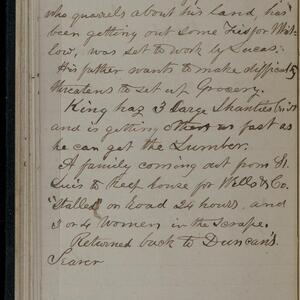 who quarels about his land, has
been getting out some Ties for Wist-
low, was set to work by Lucas.
His father wants to make difficulty
threatens to set up Grocery.
King haz 3 large Shanties
and is getting others as fast as
he can get the Lumber.
A family coming out from St.
Luis to Keep house for Wells & Co.
"Stalled" on Road 24 hours, and
3 or 4 women in the scrape.
Returned back to Duncan's.